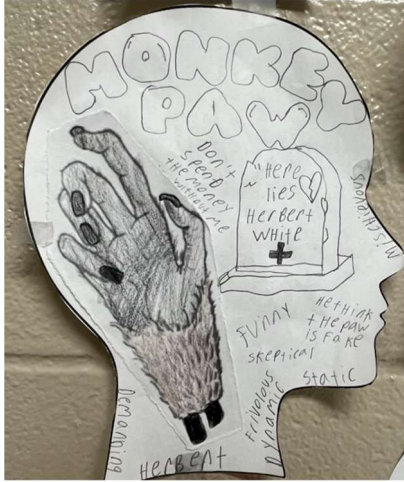 MONKEY
PAW
Don't
spend
the money
without me
"Here
lies
Herbert
White
mischievous
Funny
skeptical
He think
the paw
is Fake
static
Frivolous
Dynamic
Demanding
Herbert